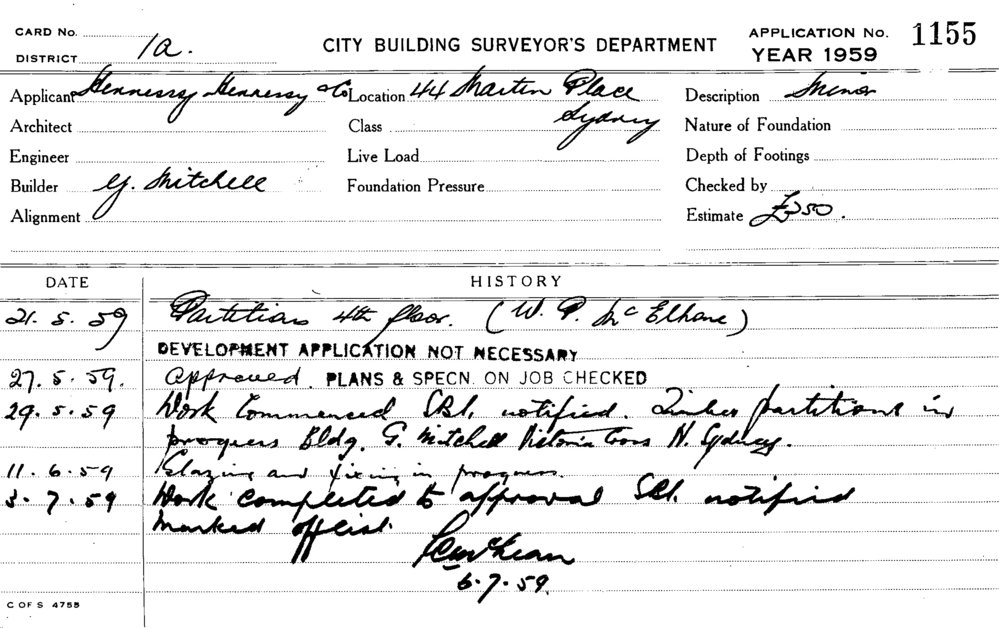 CARD No.
DISTRICT 1a.
CITY BUILDING SURVEYOR'S DEPARTMENT
APPLICATION No. 1155
YEAR 1959
Applicant Hennessy Hennessy & Co Location 44 Martin Place Description Minor
Architect Class Sydney Nature of Foundation
Engineer Live Load Depth of Footings
Builder G. Mitchell Foundation Pressure Checked by
Alignment Estimate £350.
DATE HISTORY
21.5.59 Partitions 4th floor. (W. P. McElhone)
DEVELOPMENT APPLICATION NOT NECESSARY
27.5.59. Approved. PLANS & SPECN. ON JOB CHECKED
29.5.59 Work Commenced notified. Timber partitions in
progress Bldg. G. Mitchell Victoria N. Sydney.
11.6.59 Glazing and fixing in progress.
3.7.59 Work completed to approval notified
marked off list.
6.7.59.
C OF S 4755